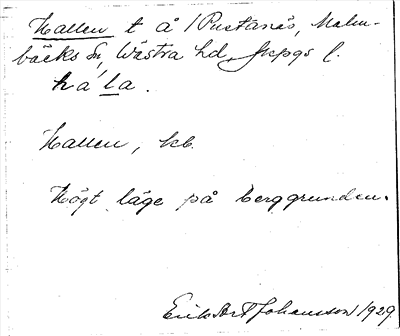 Hallen t å /Pustanäs, Malm-
bäcks sn, Västra hd, Jkpgs l.
hála.
Hallen, kb.
Högt läge på berggrunden.
Erik Johansson 1929